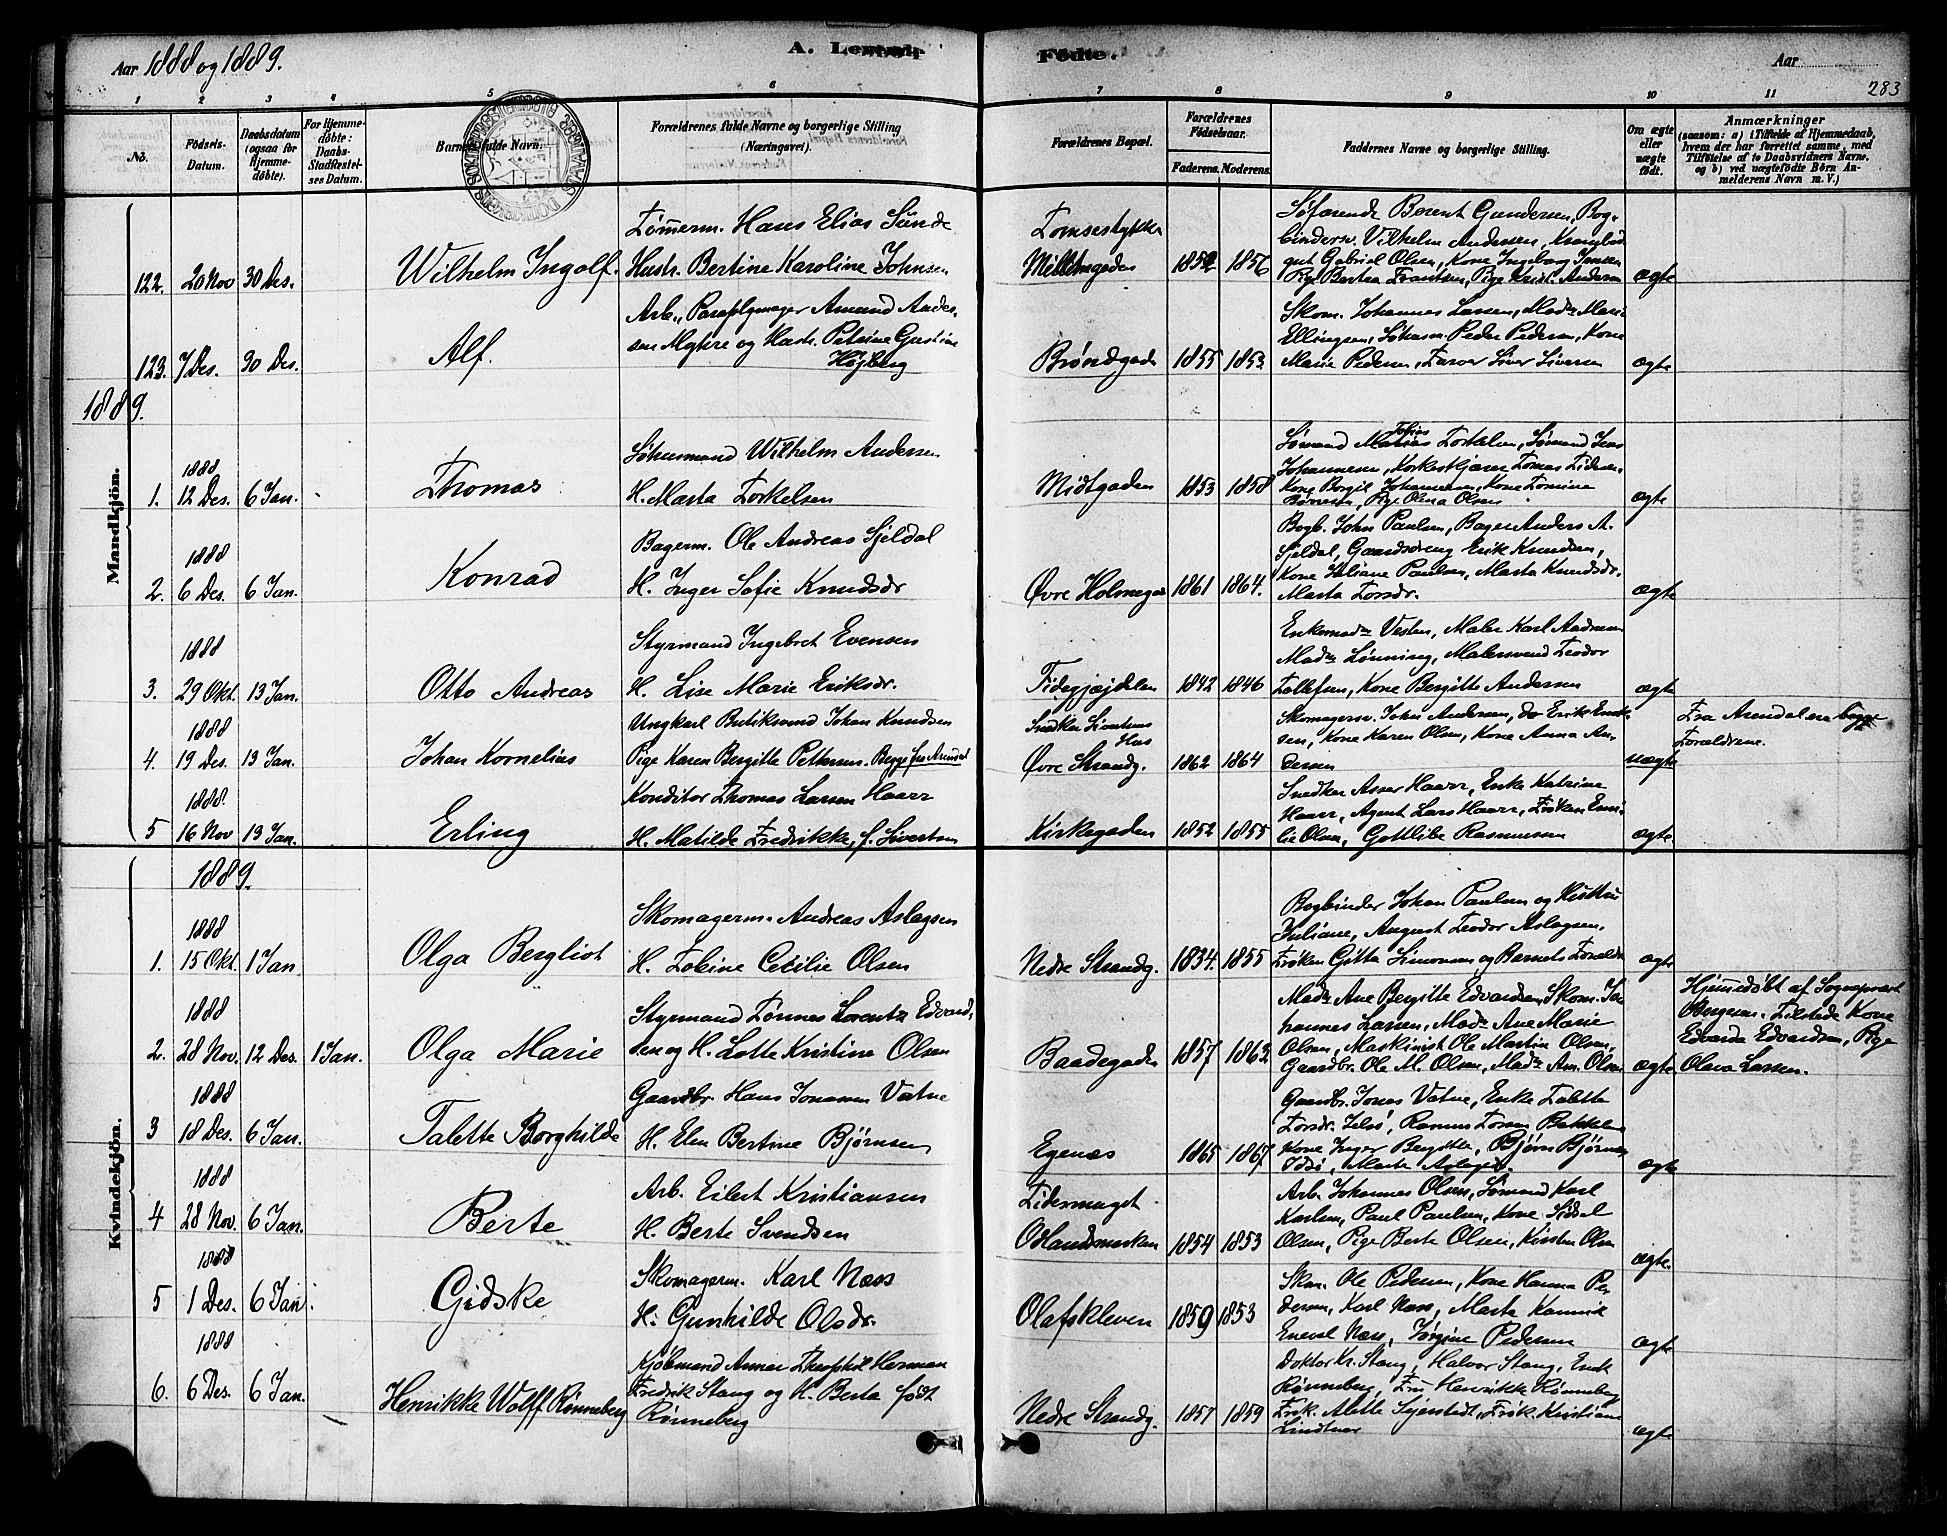 Aar 1888 og 1889.
A. Levende Fødte.
Aar
283
1 2 3 4 5 6 7 8 9 10 11
No.
Fødsels-Datum.
Daabsdatum (ogsaa for Hjemmedøbte).
For Hjemmedøbte: Daabs-Stadfæstelses Datum.
Barnets fulde Navn.
Forældrenes fulde Navne og borgerlige Stilling (Næringsvei).
Forældrenes Bopæl.
Forældrenes Fødselsaar.
Faderens. Moderens.
Faddernes Navne og borgerlige Stilling.
Om ægte eller uægte født.
Anmærkninger
(saasom: a) i Tilfælde af Hjemmedaab, hvem der har forrettet samme, med Tilføielse af to Daabsvidners Navne, og b) ved uægtefødte Børn Anmelderens Navn m. V.)
Tømerm. Hans Elias Sunde
Hustr. Bertine Karoline Johnsen
122. 20 Nov 30 Des. Wilhelm Ingolf.
1852 1856
Søfarende Berent Gundersen, Bog-
bindersv. Vilhelm Andersen,
gut Gabriel Olsen, Kone Ingeborg Jensen
Pige Bertha Frantsen, Pige Krist. Andersen
ægte
Arb., Paraplymager Amund Andes-
sen Myhre og Hustr. Petrine Gustine
Højberg
123. 7 Des. 30 Des. Alf.
Brøndgade 1855 1853
Skom. Johannes Larsen, Mad. Mari
Ellingsen, Peder Pedersen, Kone
Marie Pedersen, Farver Siver Siversen
ægte
1889.
Mandkjön.
1888
1. 12 Des. 6 Jan. Thomas
Wilhelm Andersen
H. Marta Torkelsen
Midtgaden 1853 1858
Sømand Matias Tobias Torkelsen, Sømand Jens
Johannesen, Tomas Tidesen,
Kone Borgil Johannesen, Kone Tomine
Pige Olena Olsen
ægte
1888
2. 6 Des. 6 Jan. Konrad
Bagerm. Ole Andreas Sjeldal
H. Inger Sofie Knudsdr
Øvre Holmegade 1861 1864.
Bogb. John Paulsen, Bager Anders A.
Sjeldal, Erik Knudsen,
Kone Juliane Paulsen, Marta Knudsdr.
Marta Torsdr.
ægte
1888
3. 29 Okt. 13 Jan. Otto Andreas
Styrmand Ingebret Evensen
H. Lise Marie Eriksdr.
1842 1846
Enkemad. Vesten, Maler Karl Andresen
Mad. Lønning, Malersvend Teodor
Tollefsen, Kone Bergitte Andersen
ægte
1888
4. 19 Des. 13 Jan. Johan Kornelius
Ungkarl Butiksvend Johan Knudsen
Pige Karen Bergitte Pettersen. Begge fra Arendal
Snedker Simonsens Hus
Øvre Strandg. 1862 1864
Skomagersv. John Andersen, do Erik Erik-
sen, Kone Karen Olsen, Kone Anna An-
dersen
uægte
Fra Arendal ere begge
Forældrene.
1888.
5 16 Nov 13 Jan. Erling
Konditor Thomas Larsen Haarr
H. Matilde Fredrikke, f. Sivertsen
Kirkegaden 1852 1855
Snedker Asser Haarr, Enke Katrine
Haarr, Agent Lars Haarr, Frøken Emi-
lie Olsen, Gottlibe Rasmussen
ægte
1889.
Kvindekjön.
1888
1. 15 Okt. 1 Jan Olga Bergliot
Skomagerm. Andreas Aslagsen
H. Tobine Cecilie Olsen
Nedre Strandg. 1834. 1855
Bogbinder Johan Paulsen og Hustru
Juliane, August Teodor Aslagsen.
Frøken Gitta Simonsen og Barnets Forældre
ægte
1888
2. 28 Nov. 12 Des. 1 Jan. Olga Marie
Styrmand Tønnes Lorentz Edvard-
sen og H. Lotte Kristine Olsen
Baadegaden 1857 1862
Mad. Ane Bergitte Edvardsen, Skom. Jo-
hannes Larsen, Mad. Ane Marie
Olsen, Maskinist Ole Martin Olsen,
Gaardbr. Ole M. Olsen, Mad. Am. Olsen
ægte
Hjemmedøbt af Sognepræst
Bergesen. Tilstede Kone
Edvarda Edvardsen, Pige
Olava Larsen.
1888
3 18 Des. 6 Jan. Talette Borghilde
Gaardbr. Hans Jonassen Vatne
H. Elen Bertine Bjørnsen
Egenæs 1865 1867
Gaardbr. Jonas Vatne, Enke Talette
Torsdr. Rasmus Torsen Bakkelen
Kone Inger Bergitte, Bjørn Bjørnsen
Idsø, Marta Aslagsdr.
ægte
1888
4 28 Nov. 6 Jan. Berte
Arb. Eilert Kristiansen
H. Berte Svendsen
Odlandsmarken 1854 1853
Arb. Johannes Olsen, Sømand Karl
Karlsen, Paul Paulsen, Kone Sidsel
Olsen, Pige Berte Olsen, Kirsten Olsen
ægte.
1888
5 1 Des. 6 Jan. Gidske
Skomagerm. Karl Næss
H. Gunhilde Olsdr.
Olafskleven 1859 1853
Skm. Ole Pedersen, Kone Hanna Pe-
dersen, Karl Næss, Marta Kannik
Enevel Næss, Jørgine Pedersen
ægte
1888
6. 6 Des. 6 Jan. Henrikke Wolff Rønneberg
Kjøbmand Annar Theophil Herman
Fredrik Stang og H. Berta født
Rønneberg
Nedre Strandg. 1857 1859
Doktor Kr. Stang, Halvor Stang, Enok
Rønneberg, Fru Henrikke Rønneberg
Frøk. Alette Sejersted, Frøk. Kristiane
Lindtner
ægte